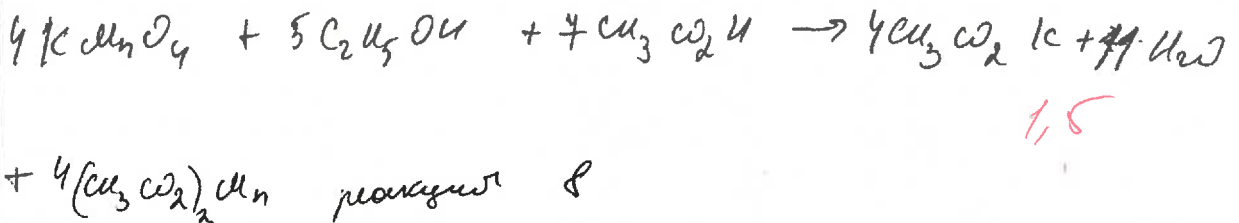 4KMnO₄ + 5C₂H₅OH + 7CH₃CO₂H → 4CH₃CO₂K + 11H₂O
1,5
+ 4(CH₃CO₂)₂Mn реакция 8